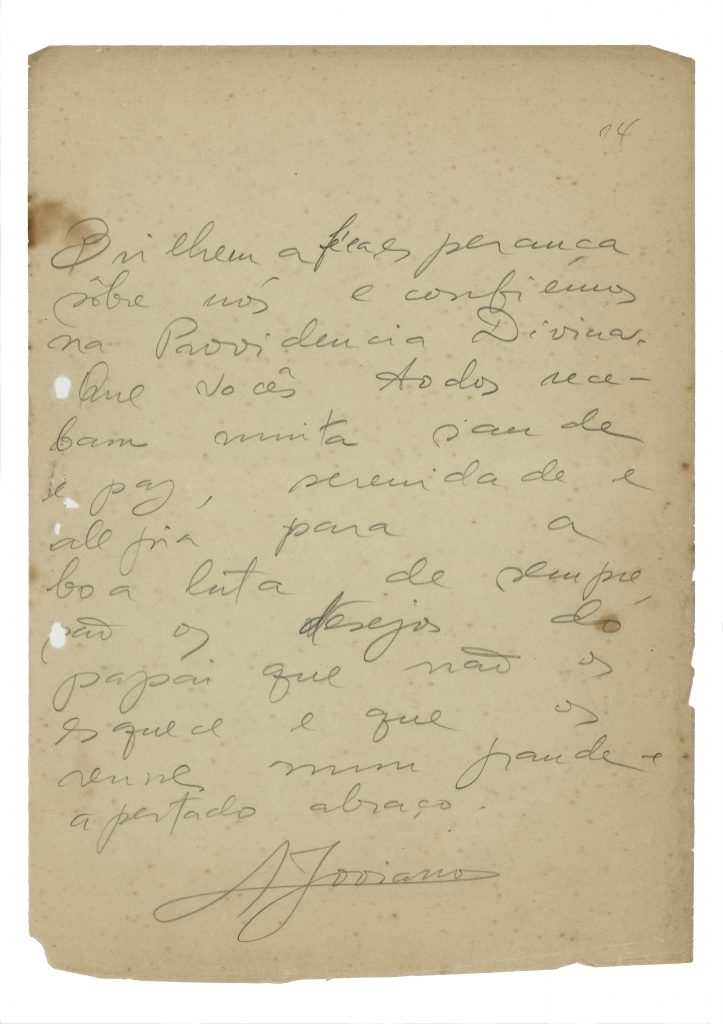 14
Brilhem a fé e a esperança
sôbre nós e confiêmos
na Providencia Divina.
Que vocês todos rece-
bam muita saude
e paz, serenidade e
alegria para a
boa luta de sempre,
são os desejos do
papai que não os
esquece e que os
reune num grande e
apertado abraço.
A Joviano